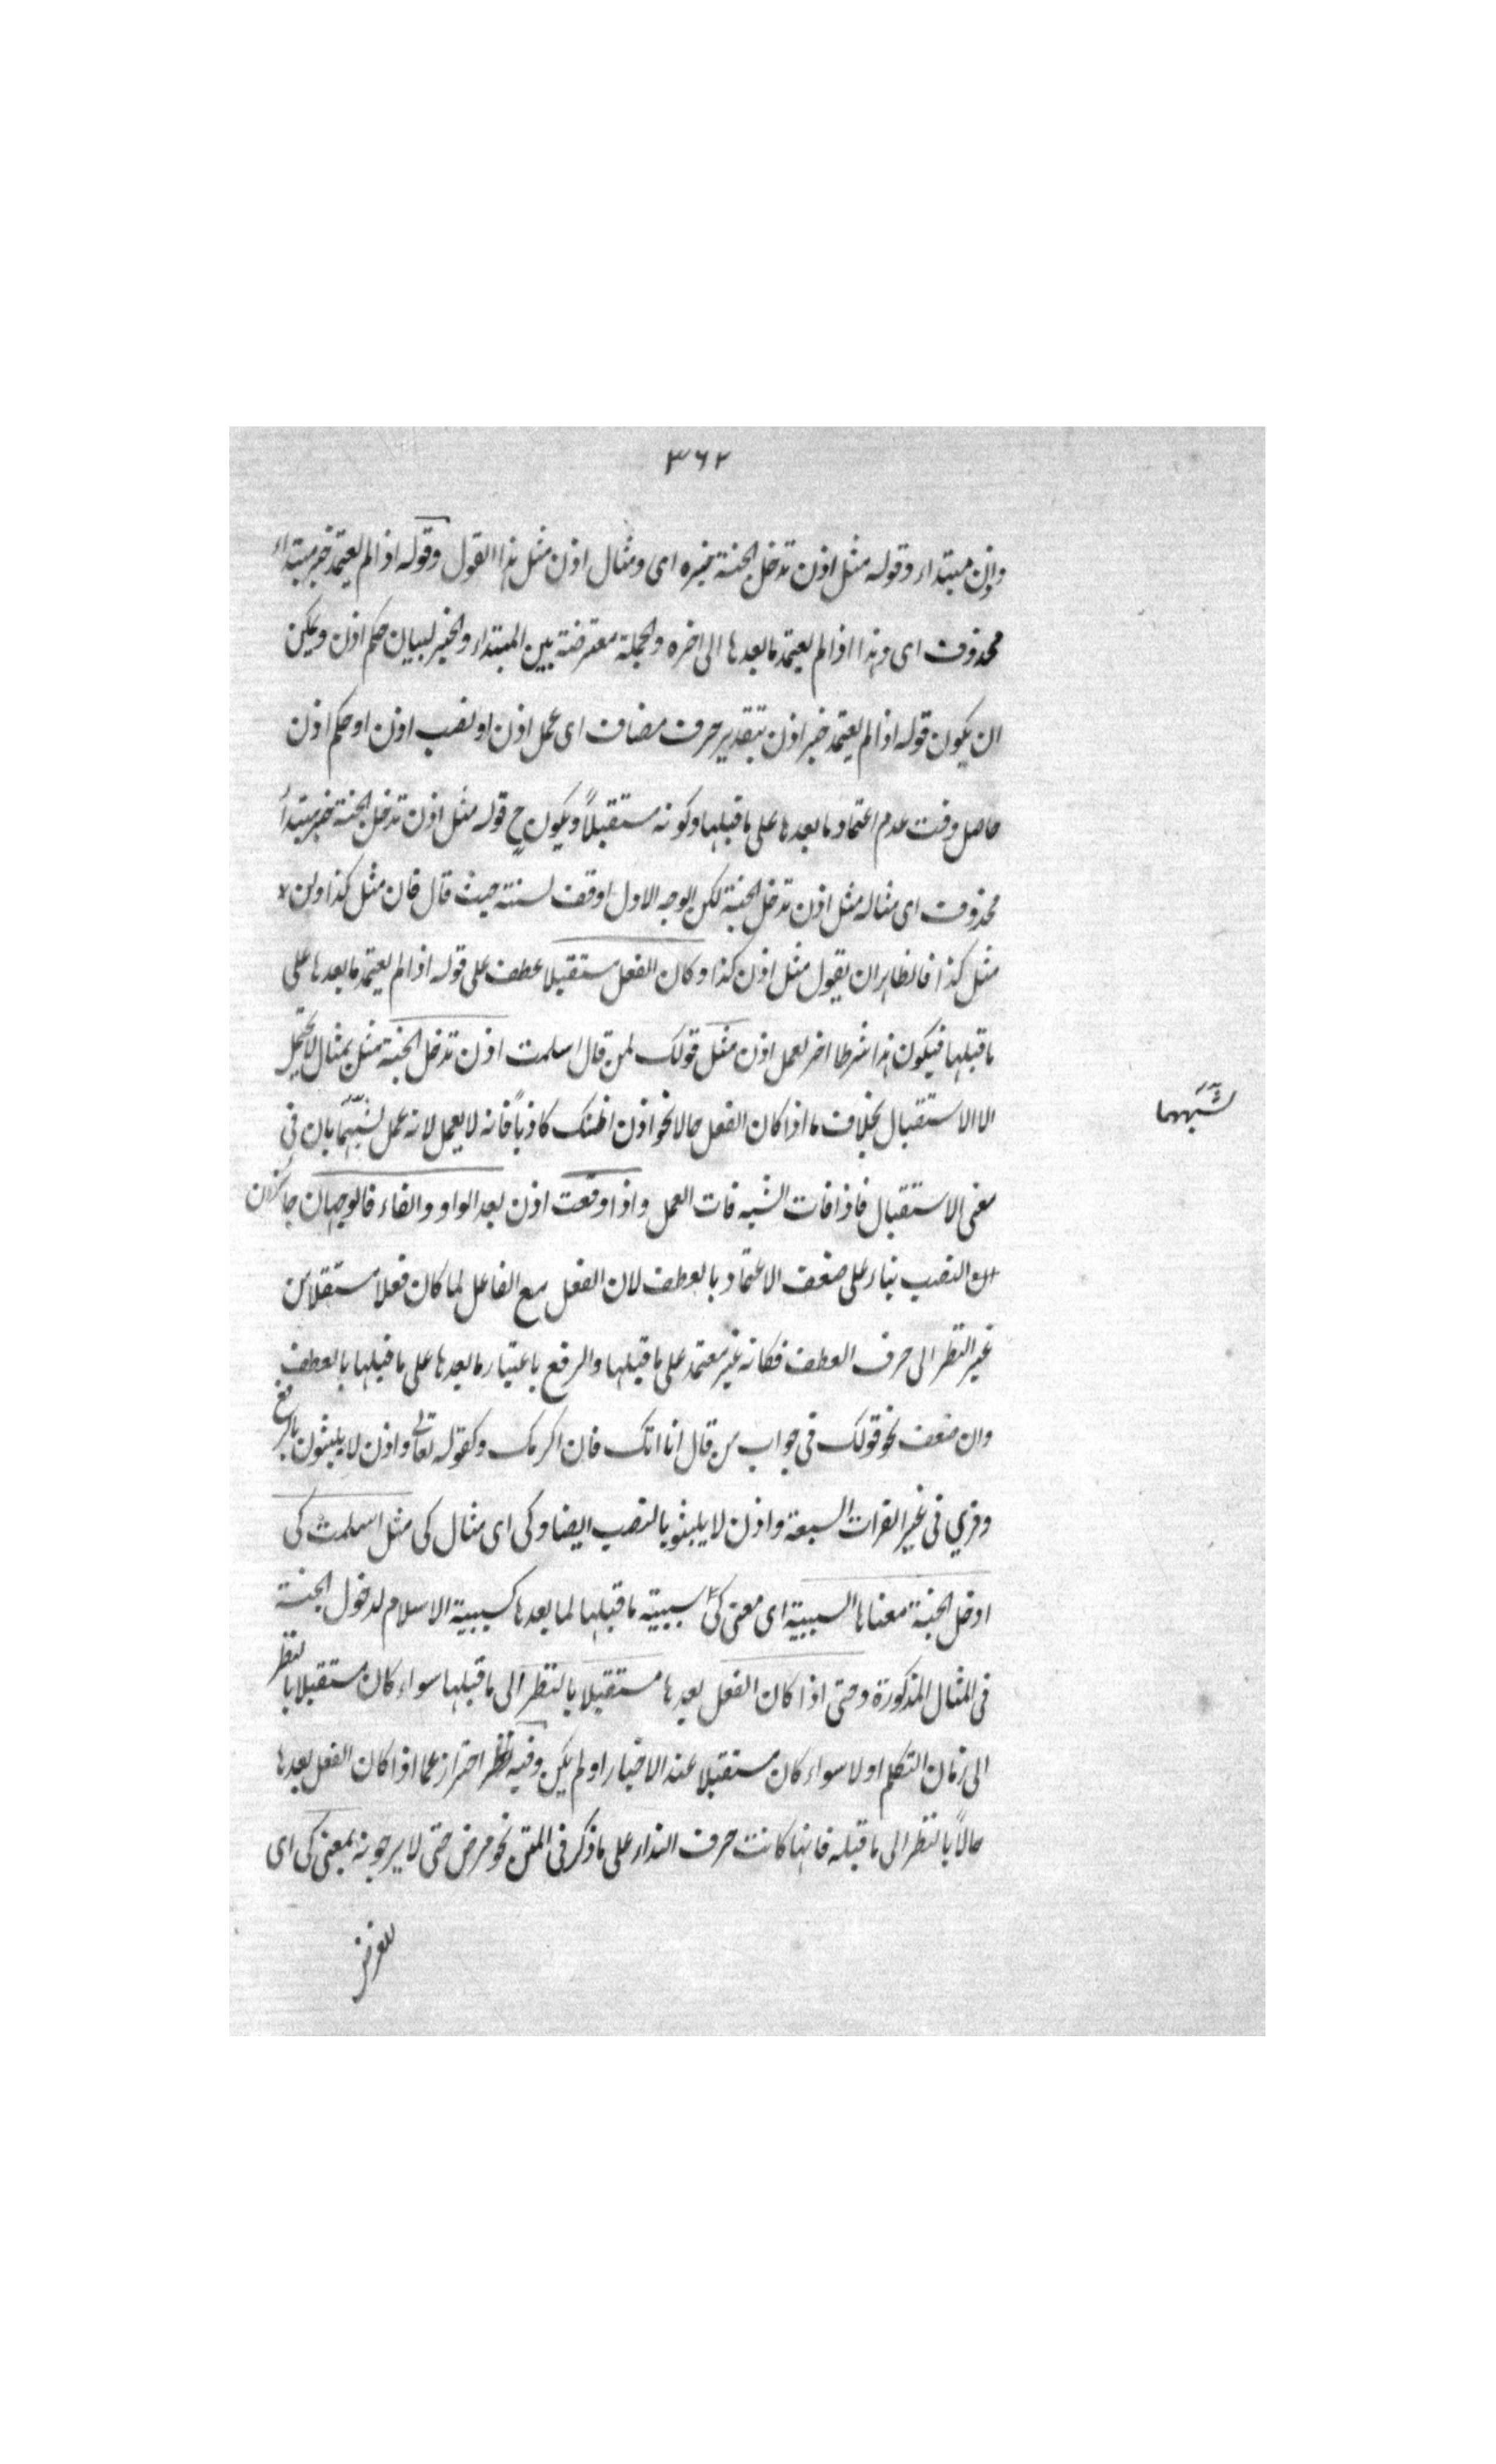 ٣٦٢
واذن مبتداء وقوله مثل اذن تدخل الجنة خبره اى ومثال اذن مثل هذا القول وقوله اذا لم يعتمد خبر مبتداء
محذوف اى وهذا اذا لم يعتمد ما بعدها الى اخره والجملة معترضة بين المبتداء والخبر لبيان حكم اذن ويمكن
ان يكون قوله اذا لم يعتمد خبر اذن بتقدير حرف مضاف اى عمل اذن او نصب اذن او حكم اذن
حاصل وقت عدم اعتماد ما بعدها على ما قبلها وكونه مستقبلاً ويكون ح قوله مثل اذن تدخل الجنة خبر مبتدأ
محذوف اى مثاله مثل اذن تدخل الجنة لكن الوجه الاول اوفق لسننه حيث قال فان مثل كذا ولن لا
مثل كذا فالظاهر ان يقول مثل اذن كذا وكان الفعل مستقبلا عطف على قوله اذا لم يعتمد ما بعدها على
ما قبلها فيكون هذا شرطا اخر لعمل اذن مثل قولك لمن قال اسلمت اذن تدخل الجنة مثل بمثال لا يحتمل
الا الاستقبال بخلاف ما اذا كان الفعل حالا نحو اذن اظنك كاذباً فانه لا يعمل لانه عمل لشبهها بان فى
شبهها
معنى الاستقبال فاذا فات الشبه فات العمل واذا وقعت اذن بعد الواو والفاء فالوجهان جائزان
النصب بناء على ضعف الاعتماد بالعطف لان الفعل مع الفاعل لما كان فعلا مستقلا من
غير النظر الى حرف العطف فكانه غير معتمد على ما قبلها والرفع باعتبار ما بعدها على ما قبلها بالعطف
وان ضعف نحو قولك فى جواب من قال انا اتك فاذن اكرمك وكقوله تعالى واذن لا يلبثون بالرفع
وقري فى غير القرات السبعة واذن لا يلبثو بالنصب ايضا وكى اى مثال كى مثل اسلمت كى
ادخل الجنة معناها السببية اى معنى كى سببية ما قبلها لما بعدها كسببية الاسلام لدخول الجنة
فى المثال المذكورة وحتى اذا كان الفعل بعدها مستقبلا بالنظر الى ما قبلها سواء كان مستقبلا بالنظر
الى زمان التكلم اولا سواء كان مستقبلا عند الاخبار او لم يكن وفيه نظر احتراز عما اذا كان الفعل بعدها
حالاً بالنظر الى ما قبله فانها كانت حرف ابتداء على ما ذكر فى المتن نحو مرض حتى لا يرجونه بمعنى كى اى
للغرض